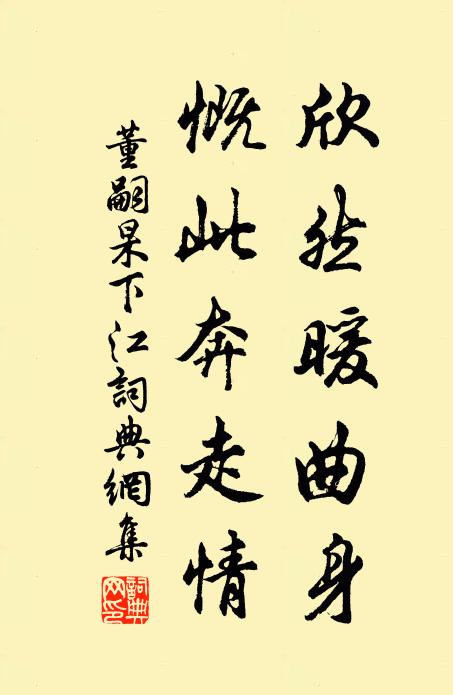 欣然暖曲身
慨此奔走情
董嗣杲下江詞典網集
詞典網印